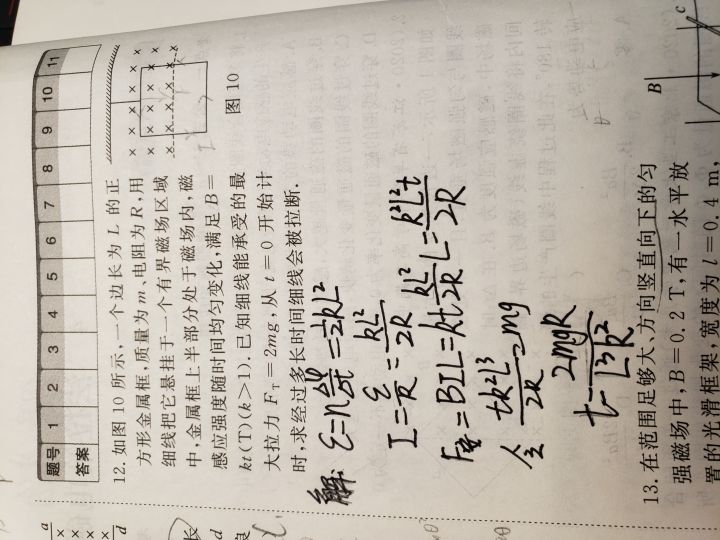 题号 1 2 3 4 5 6 7 8 9 10 11
答案
12. 如图 10 所示,一个边长为 L 的正
方形金属框,质量为 m、电阻为 R,用
细线把它悬挂于一个有界磁场区域
中,金属框上半部分处于磁场内,磁
感应强度随时间均匀变化,满足 B=
kt(T)(k>1). 已知细线能承受的最
大拉力 F_T=2mg,从 t=0 开始计
时,求经过多长时间细线会被拉断.
图 10
解: ε=n Δφ/Δt = 1/2 kL²
I= ε/R = kL²/2R
F安=BIL=kt kL²/2R L= k²L³t/2R
令 tk²L³/2R =mg
t= 2mgR/L³k²
13. 在范围足够大、方向竖直向下的匀
强磁场中,B=0.2 T,有一水平放
置的光滑框架,宽度为 l=0.4 m,
B
c
a
d
长
d